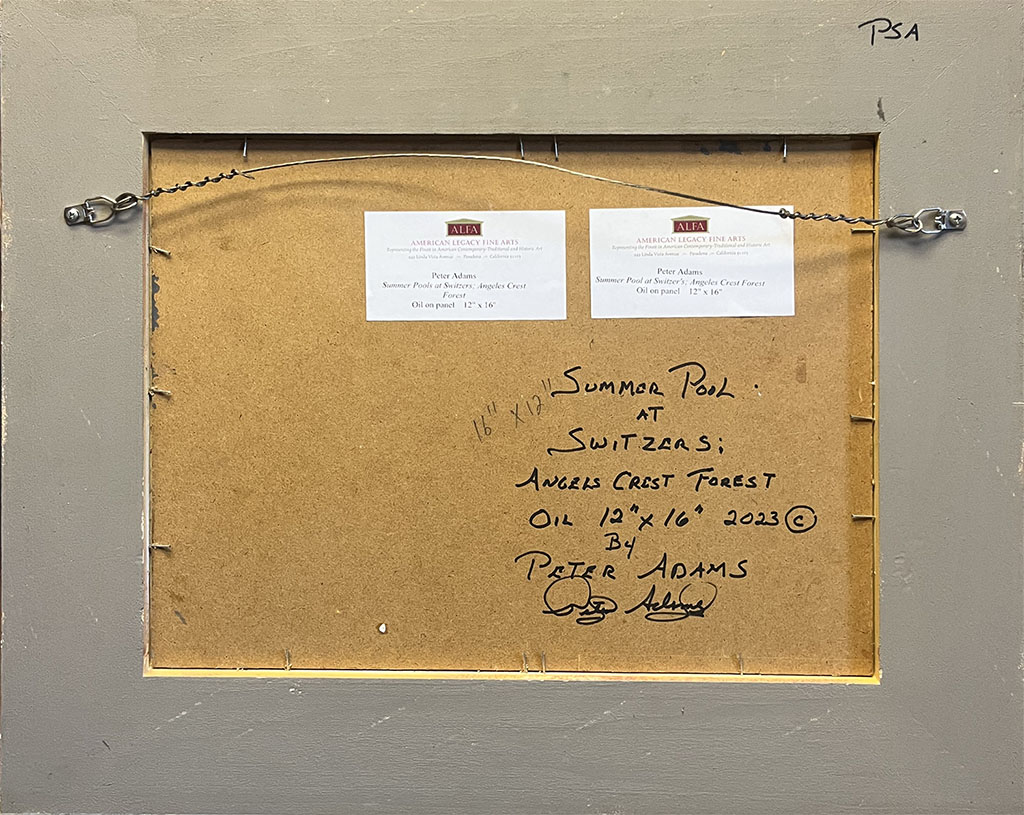 PSA
ALFA
AMERICAN LEGACY FINE ARTS
Representing the Finest in American Contemporary-Traditional and Historic Art
949 Linda Vista Avenue Pasadena California 91103
Peter Adams
Summer Pools at Switzers; Angeles Crest
Forest
Oil on panel 12" x 16"
ALFA
AMERICAN LEGACY FINE ARTS
Representing the Finest in American Contemporary-Traditional and Historic Art
949 Linda Vista Avenue Pasadena California 91103
Peter Adams
Summer Pool at Switzer's; Angeles Crest Forest
Oil on panel 12" x 16"
16" X 12"
SUMMER POOL
AT
SWITZERS;
ANGELS CREST FOREST
OIL 12" X 16" 2023 ©
By
PETER ADAMS
Peter Adams